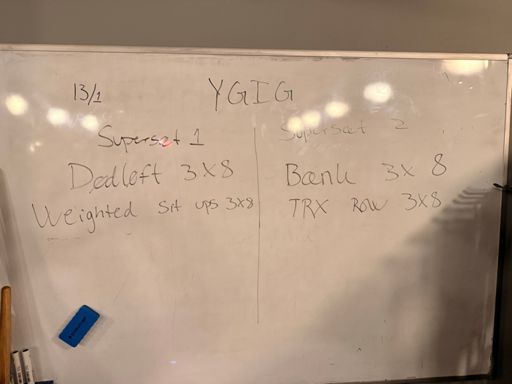 13/1
YGIG
Superset 1
Dedleft 3x8
Weighted Sit ups 3x8
Superset 2
Bænk 3x 8
TRX Row 3x8